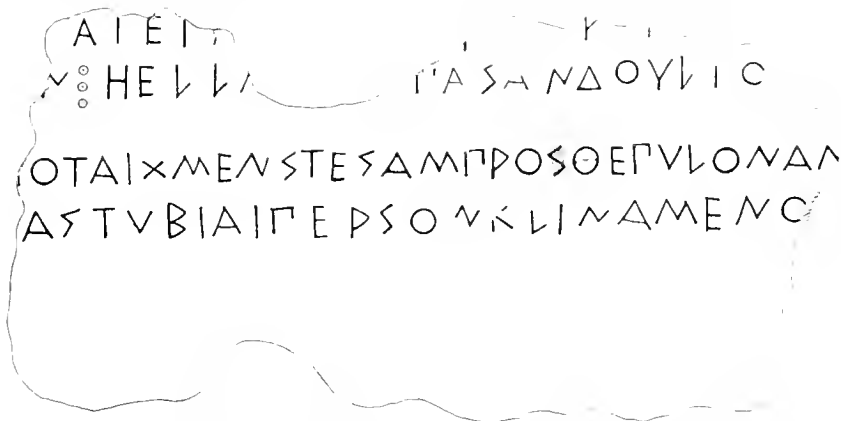 ΑΙΕΙ
Ν⁝ΗΕΛΛΑ ΠΑΣΑΝΔΟΥΛΙΟ
ΟΤΑΙΧΜΕΝΣΤΕΣΑΜΠΡΟΣΘΕΠΥΛΟΝΑΝ
ΑΣΤΥΒΙΑΙΠΕΡΣΟΝΚΛΙΝΑΜΕΝΟ